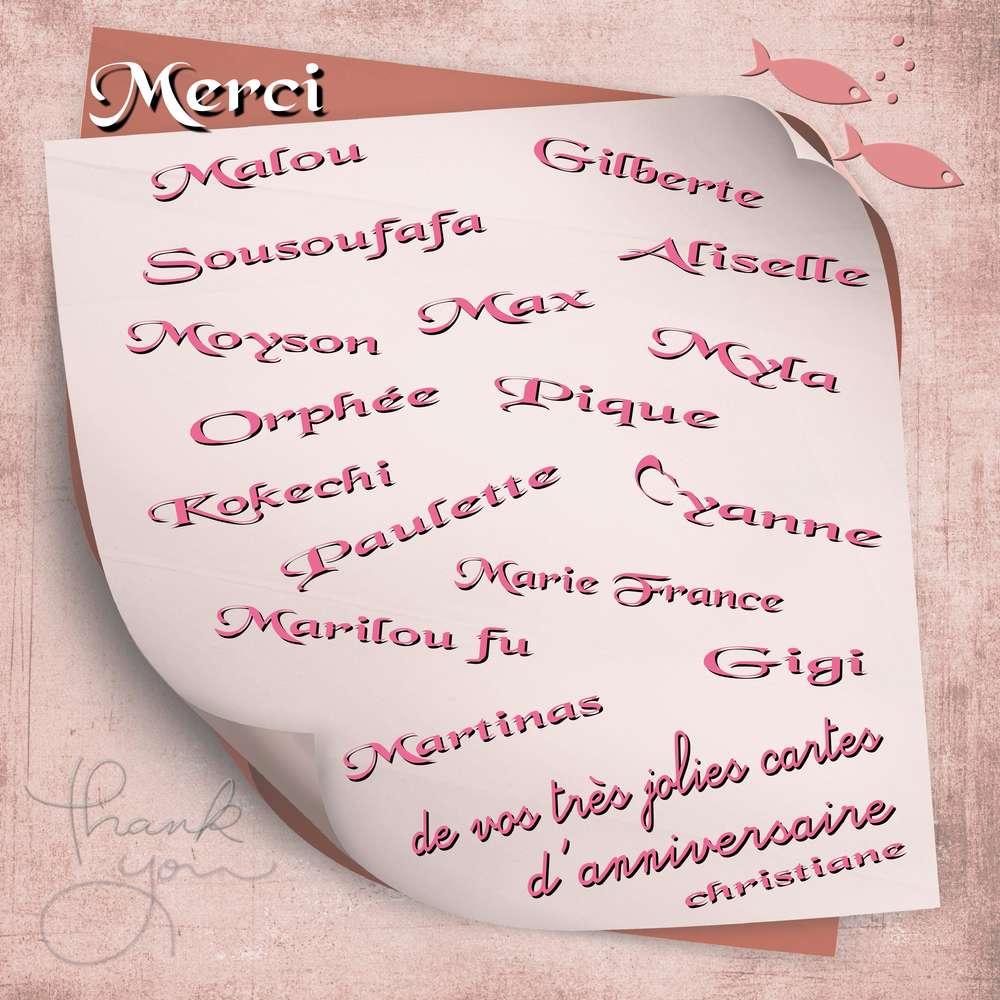 Merci
Malou
Gilberte
Sousoufafa
Aliselle
Moyson
Max
Myla
Orphée
Pique
Kokechi
Paulette
Cyanne
Marie France
Marilou fu
Gigi
Martinas
de vos très jolies cartes
d'anniversaire
christiane
thank
you